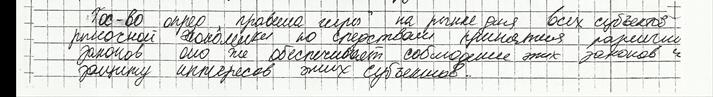 Гос-во опред. "правила игры" на рынке для всех субъектов
рыночной экономики по средствам принятия различн
законов оно же обеспечивает соблюдение этих законов и
защиту интересов этих субъектов.